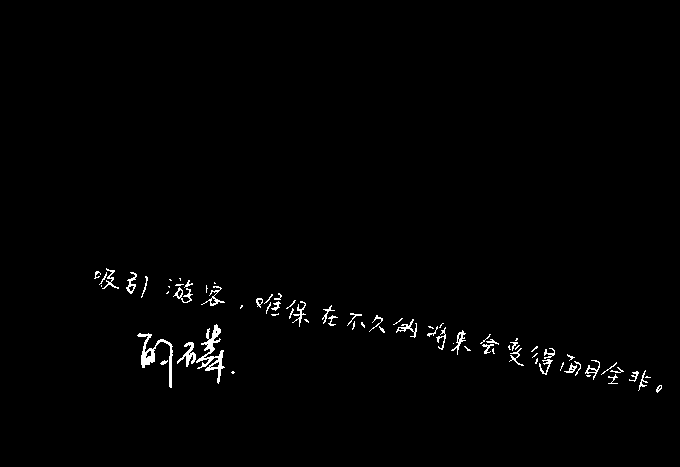 吸引游客,唯保在不久的将来会变得面目全非。
的磷.